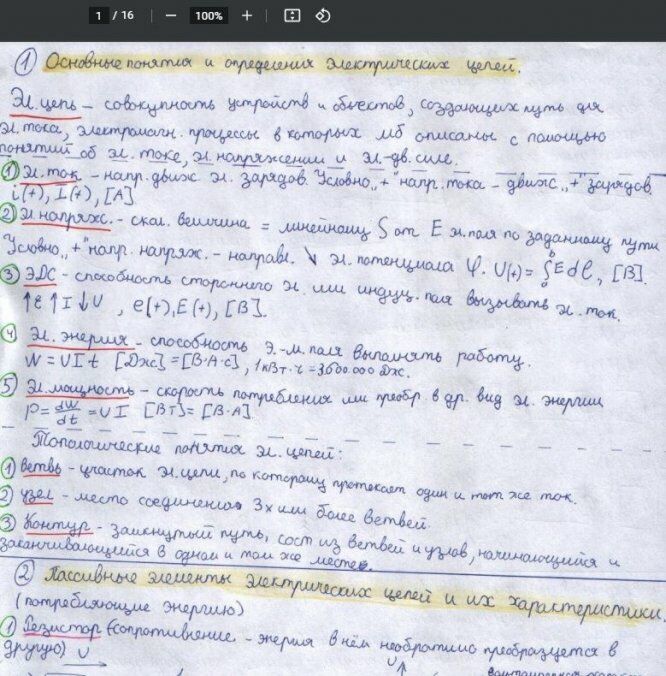 1 / 16 — 100% +
① Основные понятия и определения электрических цепей.
Эл. цепь – совокупность устройств и объектов, создающих путь для
эл. тока, электромагн. процессы в которых мб описаны с помощью
понятий об эл. токе, эл. напряжении и эл-дв. силе.
① Эл. ток – напр. движ эл. зарядов. Условно „+" напр. тока – движ. „+" зарядов.
i(+), I(+), [A]
② Эл напряж. – скал. величина = линейному S от E эл. поля по заданному пути
Условно „+" напр. напряж. – направл. ↘ эл. потенциала φ. U(+) = ∫ₐᵇ E dl, [В].
③ ЭДС – способность стороннего эл. или индуц. поля вызывать эл. ток.
↑ε ↑I ↓U, e(+), E(+), [В].
④ Эл. энергия – способность э.-м. поля выполнять работу.
W = UIt [Дж] = [В·А·с], 1кВт·ч = 3600.000 Дж.
⑤ Эл. мощность – скорость потребления или преобр. в др. вид эл. энергии
P = dW/dt = UI [Вт] = [В·А]
Топологические понятия эл. цепей:
① Ветвь – участок эл. цепи, по которому протекает один и тот же ток.
② Узел – место соединения 3х или более ветвей.
③ Контур – замкнутый путь, сост из ветвей и узлов, начинающийся и
заканчивающийся в одном и том же месте.
② Пассивные элементы электрических цепей и их характеристики.
(потребляющие энергию)
① Резистор (сопротивление – энергия в нём необратимо преобразуется в
другую) U
U